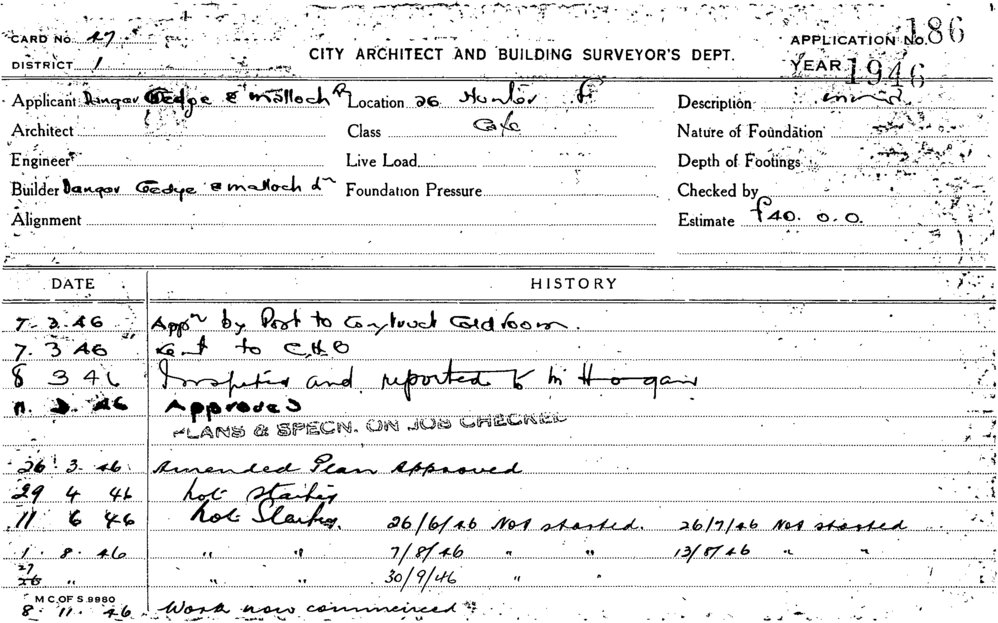 CARD No. 47
DISTRICT 1
CITY ARCHITECT AND BUILDING SURVEYOR'S DEPT.
APPLICATION No. 186
YEAR 1946
Applicant Dangar Gedye & Malloch Location 26 Hunter Description
Architect Class Cafe Nature of Foundation
Engineer Live Load Depth of Footings
Builder Dangar Gedye & Malloch Foundation Pressure Checked by
Alignment Estimate £40. 0. 0.
DATE HISTORY
7. 3. 46 Appn by Post to Construct Coldroom.
7. 3 46 Sent to C.H.O
8 3 46 Inspected and reported to Mr Hogan
11. 3. 46 Approved
PLANS & SPECN. ON JOB CHECKED
26. 3. 46 Amended Plan Approved
29 4 46 Not Started
11 6 46 Not Started. 26/6/46 Not started. 26/7/46 Not started
1. 8. 46 " " 7/8/46 " " 13/8/46 " "
27
26 " " " 30/9/46 " "
M.C.OF S.9980
8. 11. 46 Work now commenced